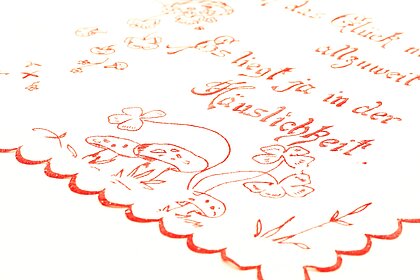 das Glück
allzuweit
Es liegt ja in der
Häuslichkeit.